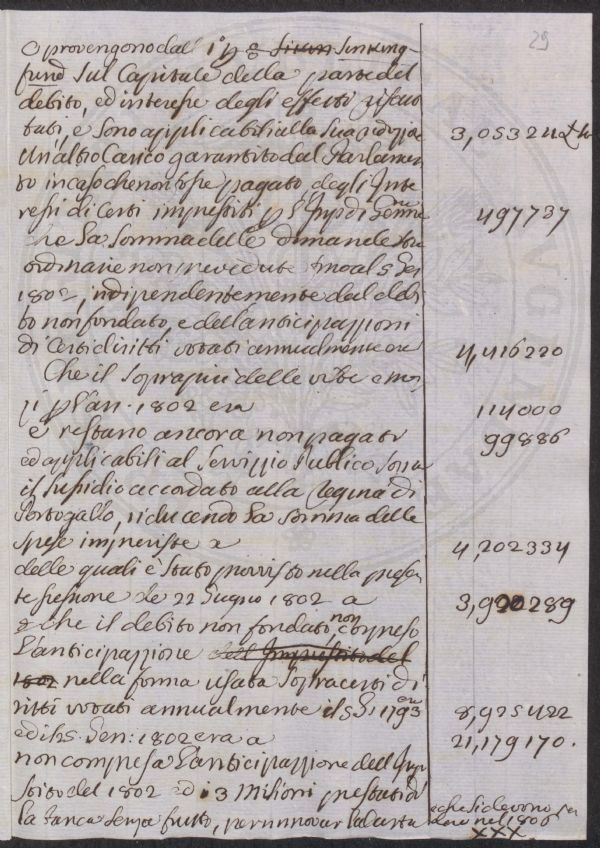 29
o provengono dall 1 p 8 Sinking
fund Sul Capitale della parte del
debito, ed interesse degli effetti riscat
tati, e sono applicabili alla sua
3,05324
Un altro Carico garantito dal Parlamen
to in caso che non fosse pagato degli Inte
ressi di Certi imprestiti p l'Imp di
497737
che la Somma delle dimande stra
ordinarie non prevedute fino al 5 Gen
1802, indipendentemente dal debi
to non fondato, e dell'anticipazzioni
di Certi diritti votati annualmente era
4,416220
Che il Soprapiù delle
p l'an. 1802 era
114000
e restano ancora non pagati
99886
ed applicabili al Servizzio Publico, sopra
il Sussidio accordato alla Regina di
Portogallo, riducendo la Somma delle
Spese impreviste a
4,202334
delle quali è stato provvisto nella presen
te sessione le 22 Giugno 1802 a
3,920289
& che il debito non fondato, non compreso
L'anticipazzione dell Imprestito del
1802 nella forma usata Sopra certi di
ritti votati annualmente il 5 G. 1793 era
8,925422
ed il 5. Gen: 1802 era a
21,179170.
non compresa L'anticipazzione dell Imp
stito del 1802 ed i 3 Milioni prestati d
la Banca Senza frutto, per rinnovar la carta
e che si devono
nel 1806
XXX